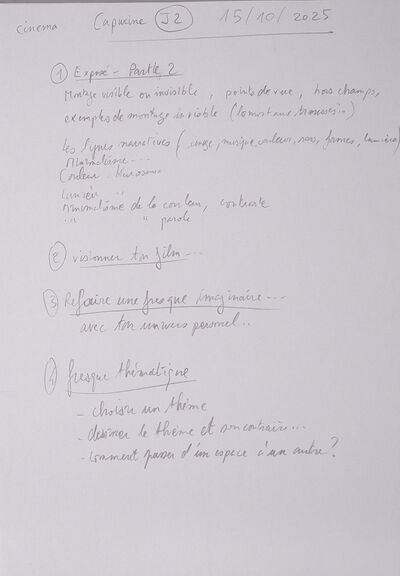 cinema Capucine J2 15/10/2025
1 Exposé - Partie 2
Montage visible ou invisible, points de vue, hors champs,
exemples de montage invisible (la mort aux trousses...)
Les lignes narratives (image, musique, couleur, sons, formes, lumière)
Minimalisme ...
Couleur. Kurosawa
Lumière "
Minimalisme de la couleur, contraste
" " parole
2 visionner ton film...
3 Refaire une fresque imaginaire...
avec ton univers personnel..
4 fresque thématique
- choisir un thème
- dessiner le thème et son contraire...
- comment passer d'un espace à un autre?